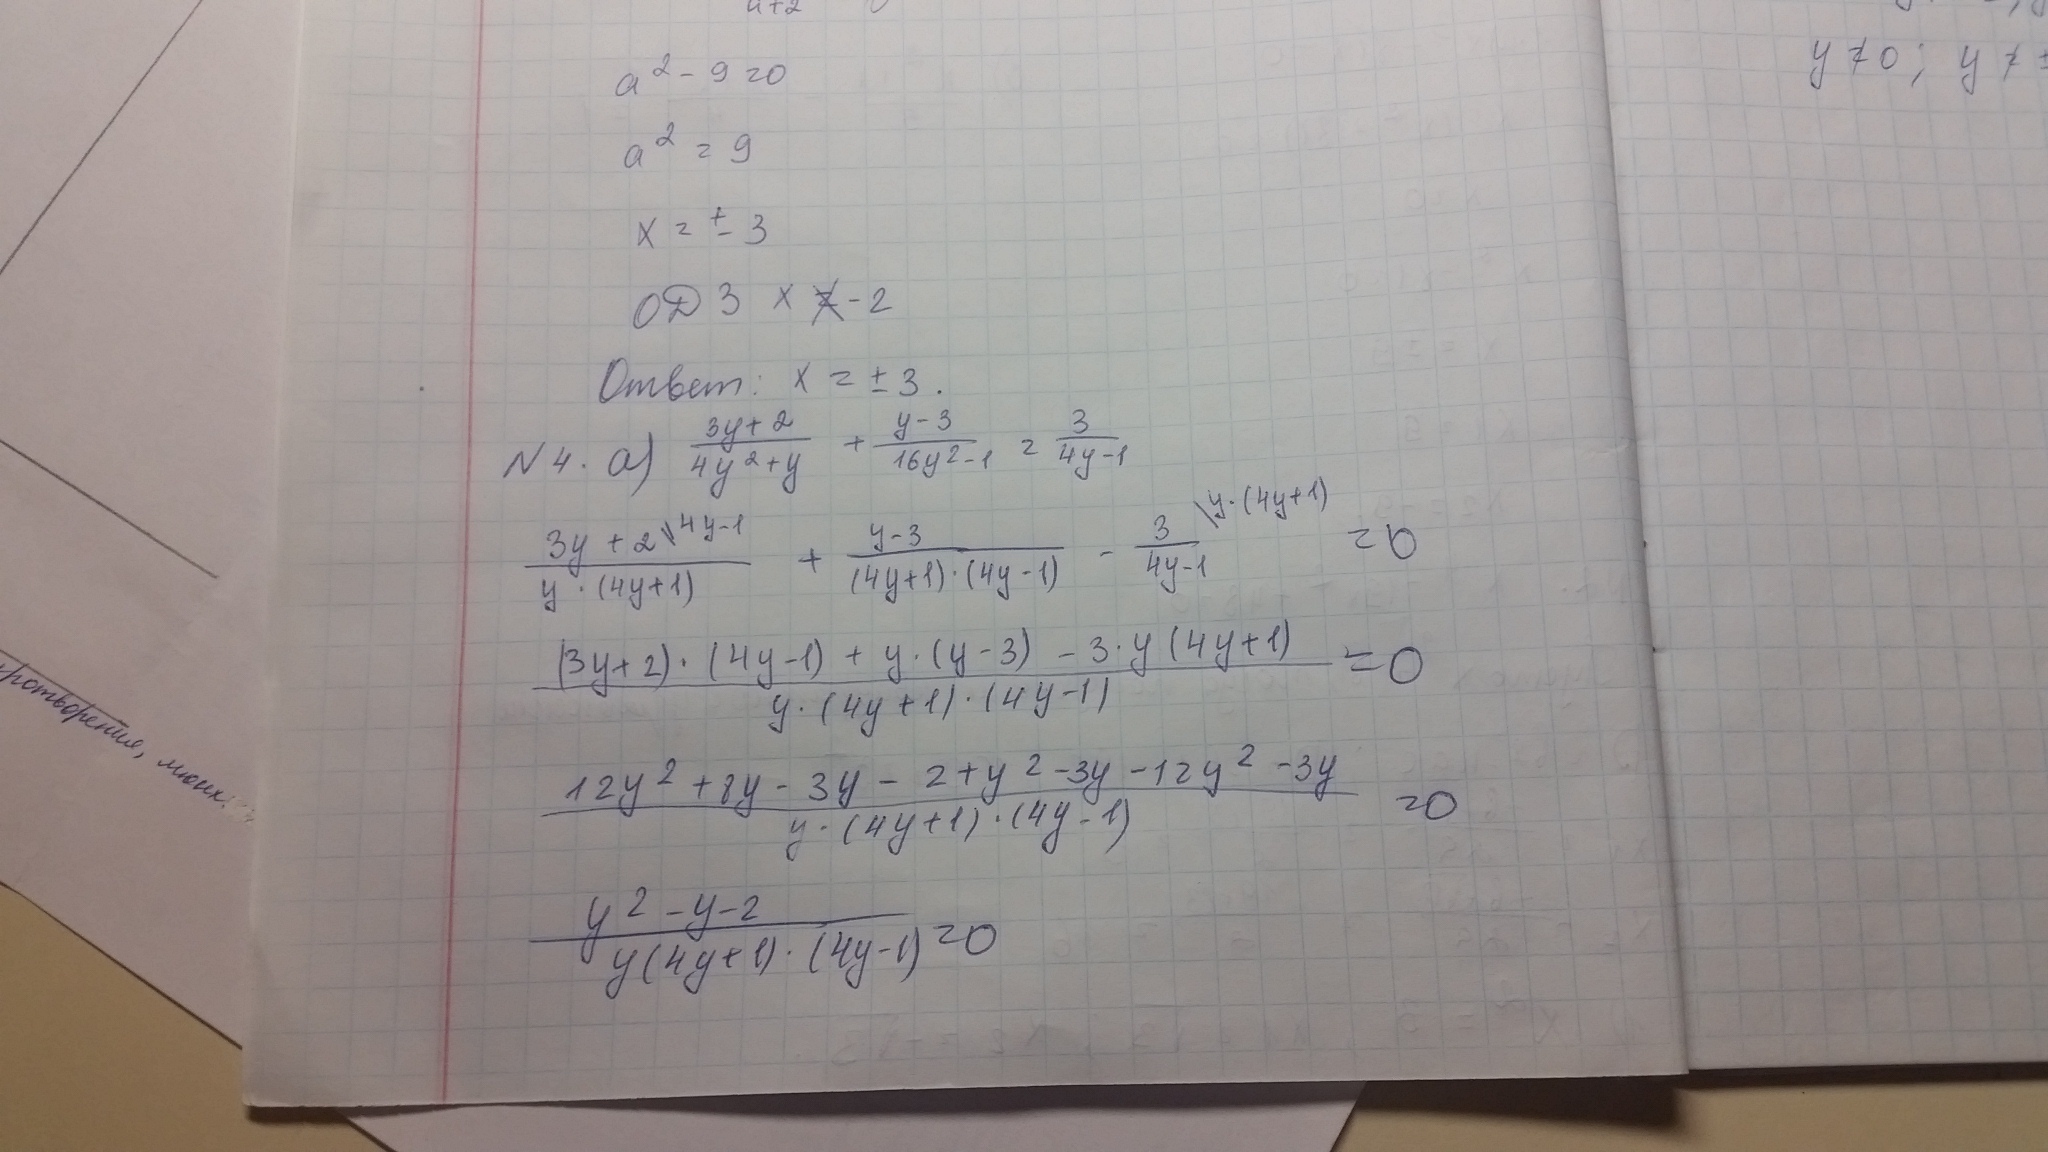 a² - 9 = 0
a² = 9
x = ± 3
ОДЗ x ≠ -2
Ответ: x = ± 3.
N 4. а) (3y+2)/(4y²+y) + (y-3)/(16y²-1) = 3/(4y-1)
(3y+2 \4y-1)/(y·(4y+1)) + (y-3)/((4y+1)·(4y-1)) - (3 \y·(4y+1))/(4y-1) = 0
((3y+2)·(4y-1) + y·(y-3) - 3·y(4y+1))/(y·(4y+1)·(4y-1)) = 0
(12y² + 8y - 3y - 2 + y² - 3y - 12y² - 3y)/(y·(4y+1)·(4y-1)) = 0
(y² - y - 2)/(y(4y+1)·(4y-1)) = 0
y ≠ 0; y ≠ ±